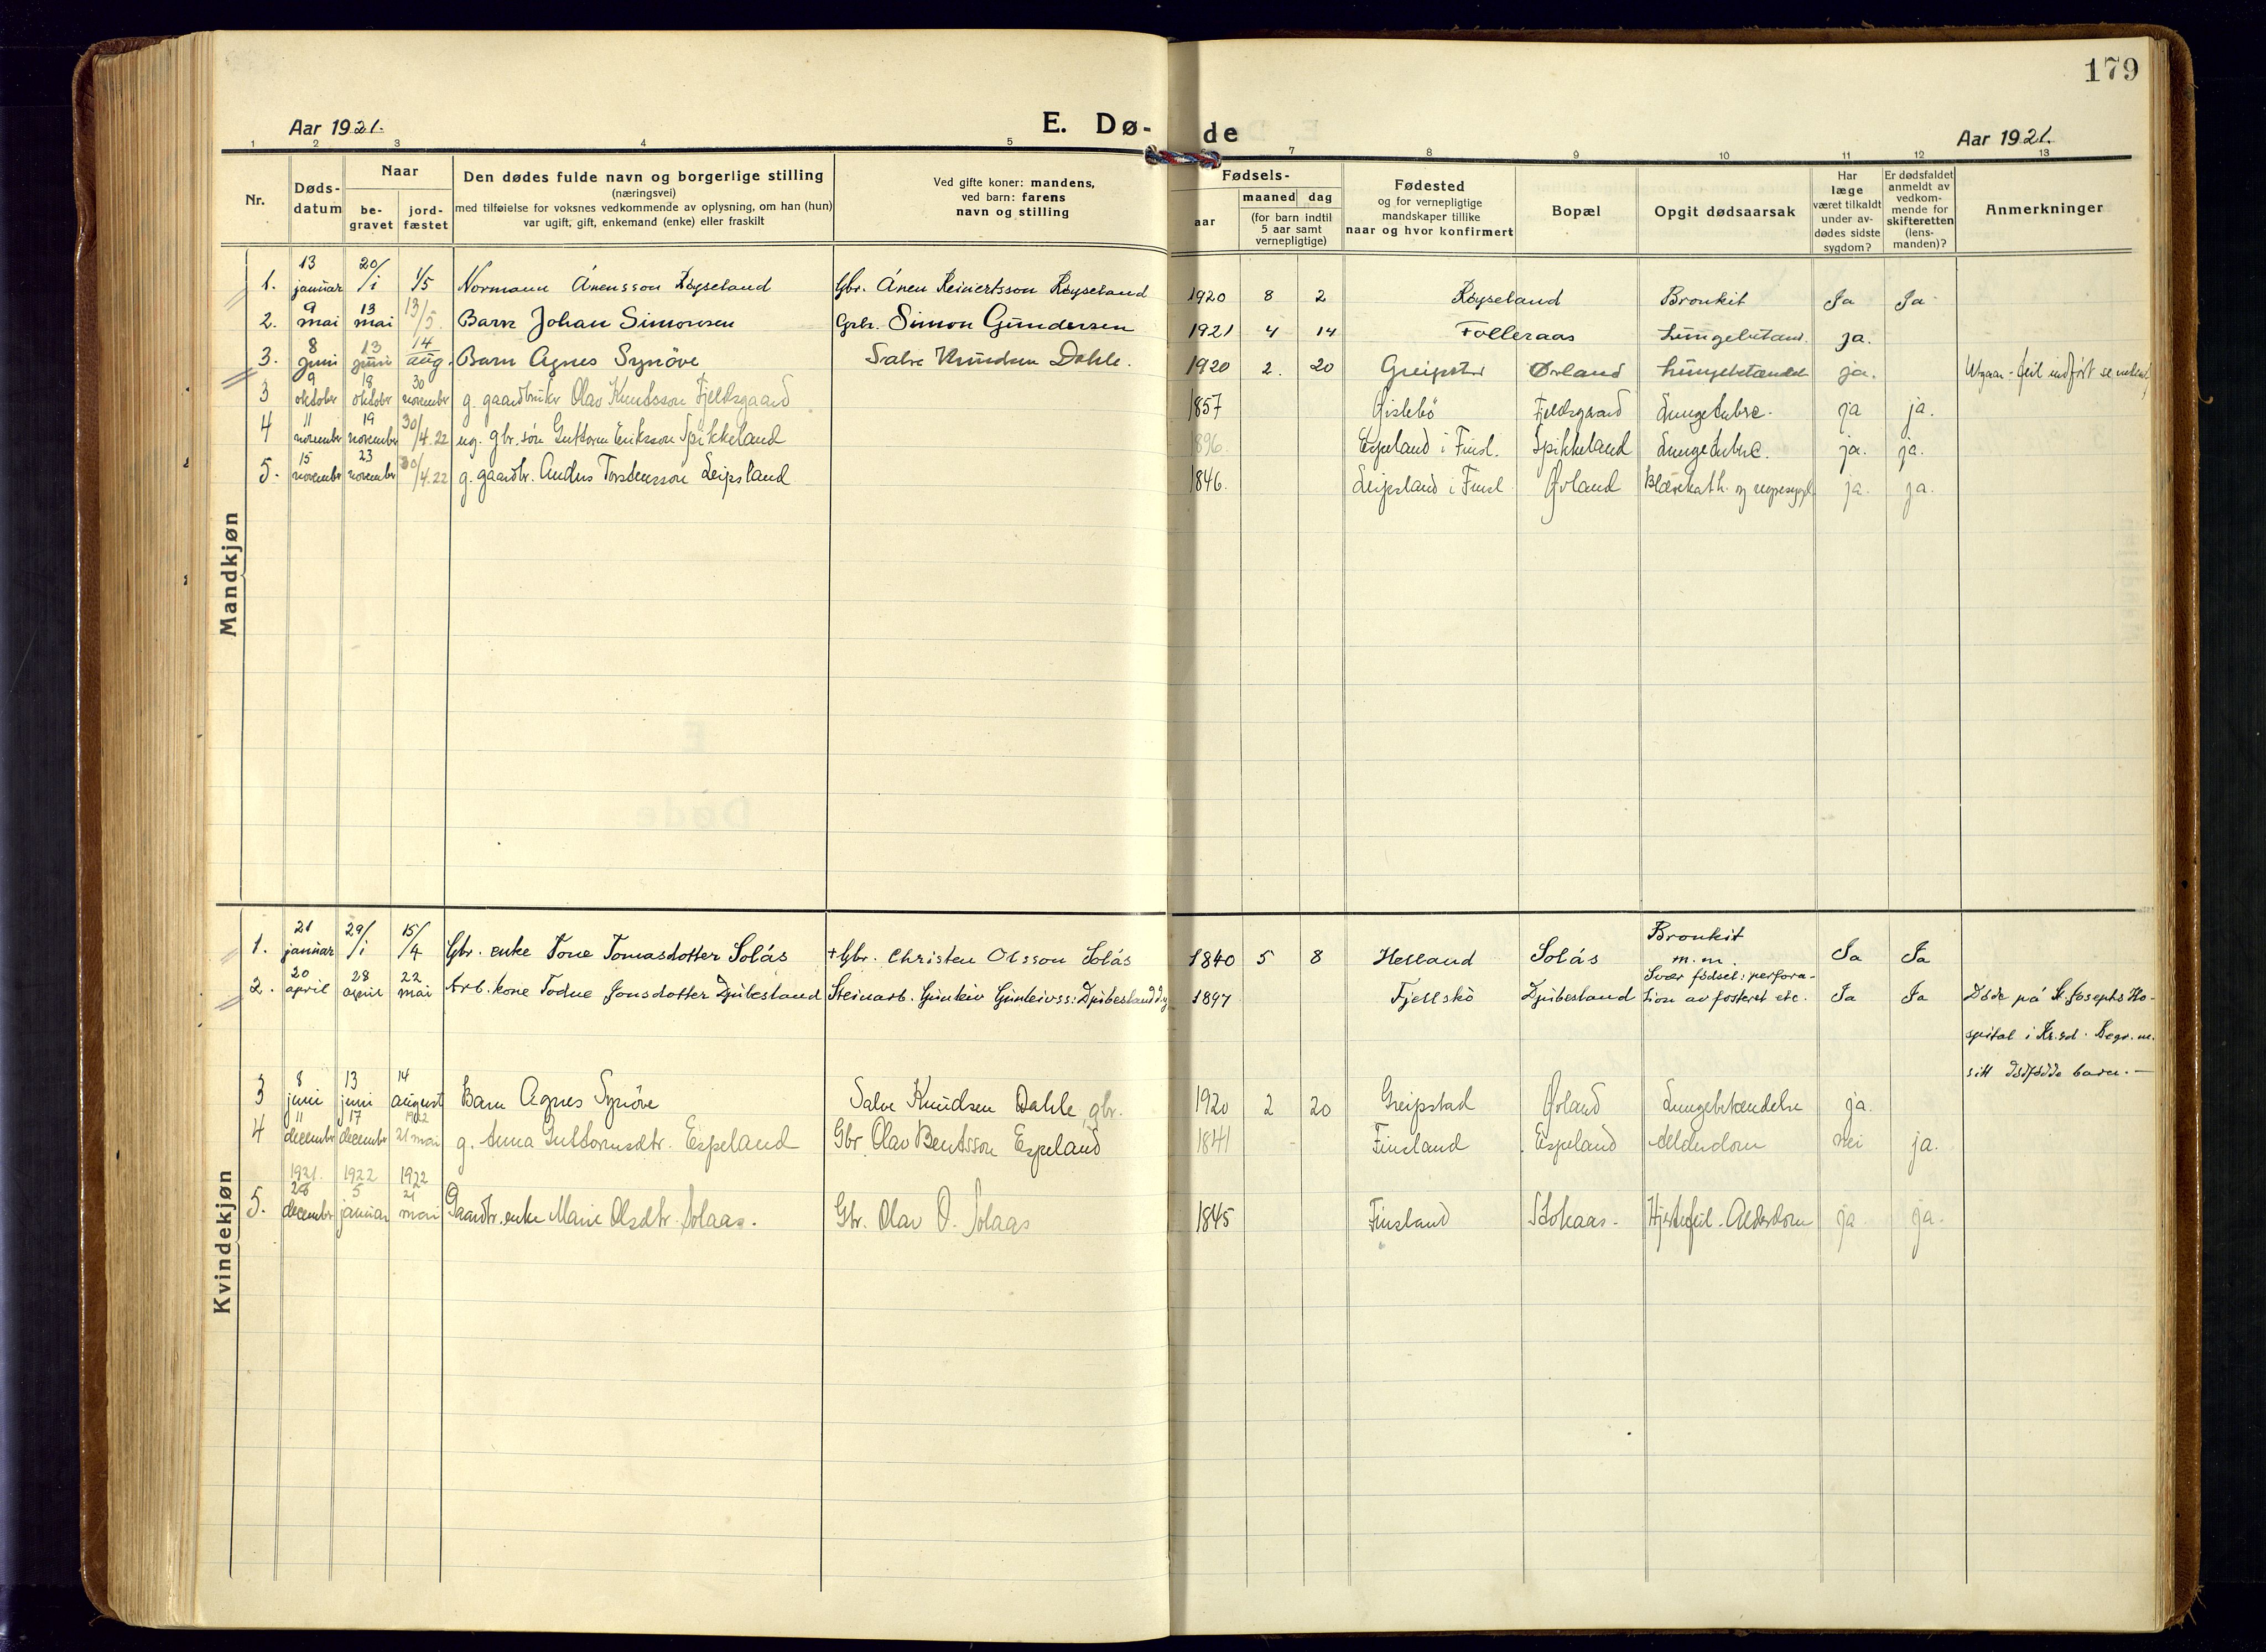 179
Aar 1921.
E. Dø- de
Aar 1921.
1 2 3 4 5 7 8 9 10 11 12 13
Nr.
Døds-
datum
Naar
be-
gravet
jord-
fæstet
Den dødes fulde navn og borgerlige stilling
(næringsvei)
med tilføielse for voksnes vedkommende av oplysning, om han (hun)
var ugift, gift, enkemand (enke) eller fraskilt
Ved gifte koner: mandens,
ved barn: farens
navn og stilling
Fødsels-
aar
maaned dag
(for barn indtil
5 aar samt
vernepligtige)
Fødested
og for vernepligtige
mandskaper tillike
naar og hvor konfirmert
Bopæl
Opgit dødsaarsak
Har
læge
været tilkaldt
under av-
dødes sidste
sygdom?
Er dødsfaldet
anmeldt av
vedkom-
mende for
skifteretten
(lens-
manden)?
Anmerkninger
Mandkjøn
1. 13 januar 20/1 1/5 Normann Ånensson Røyseland Gbr. Ånen Reinertsson Røyseland 1920 8 2 Røyseland Bronkit Ja Ja
2. 9 mai 13 mai 13/5. Barn Johan Simonsen Gbr. Simon Gundersen 1921 4 14 Folleraas ja.
3. 8 juni 13 juni 14 aug. Barn Agnes Synöve Salve Knudsen Dahle. 1920 2. 20 Greipstad Øvland Lungebetændelse ja. Utgaar - feil indført se nedenf.
3 9 oktober 18 oktober 30 november g. gaardbruker Olav Knutsson Fjeldsgaard 1857 Gislebö Fjeldsgaard Lungetuberc. ja ja.
4 11 november 19 november 30/4.22 ug. gbr. søn Guttorm Eriksson Spikkeland 1896 Espeland i Finsl. Spikkeland Lungetuberc. ja. ja.
5. 15 november 23 november 30/4.22 g. gaardbr. Anders Torstensson Leipsland 1846. Leipsland i Finsl. Øvland Blærekath. og ja. ja.
Kvindekjøn
1. 21 januar 29/1 15/4 Gbr. enke Tone Tomasdotter Solås + Gbr. Christen Olsson Solås 1840 5 8 Helland Solås Bronkit m.m. Ja Ja
2. 20 april 28 april 22 mai Arb. kone Todne Jonsdotter Djubesland Steinarb. Gunleiv Gunleivss: Djubesland 1897 Fjellskö Djubesland Svær fødsel: perfora-
tion av fosteret etc. Ja Ja Døde på St. Josephs Ho-
spital i Kr.sd. Begr. m.
sitt dödfödde barn. –
3 8 juni 13 juni 14 august Barn Agnes Synöve Salve Knudsen Dahle gbr. 1920 2 20 Greipstad Øvland Lungebetændelse ja.
4 11 december 17 december 1922 21 mai g. Anna Guttormsdtr. Espeland Gbr. Olav Bentsson Espeland 1841 - Finsland Espeland Alderdom nei ja.
5. 1921. 28 december 1922 5 januar 1922 21 mai Gaardbr. enke Marie Olsdtr. Solaas. Gbr. Olav O. Solaas 1845 Finsland Hjertefeil. Alderdom ja ja.